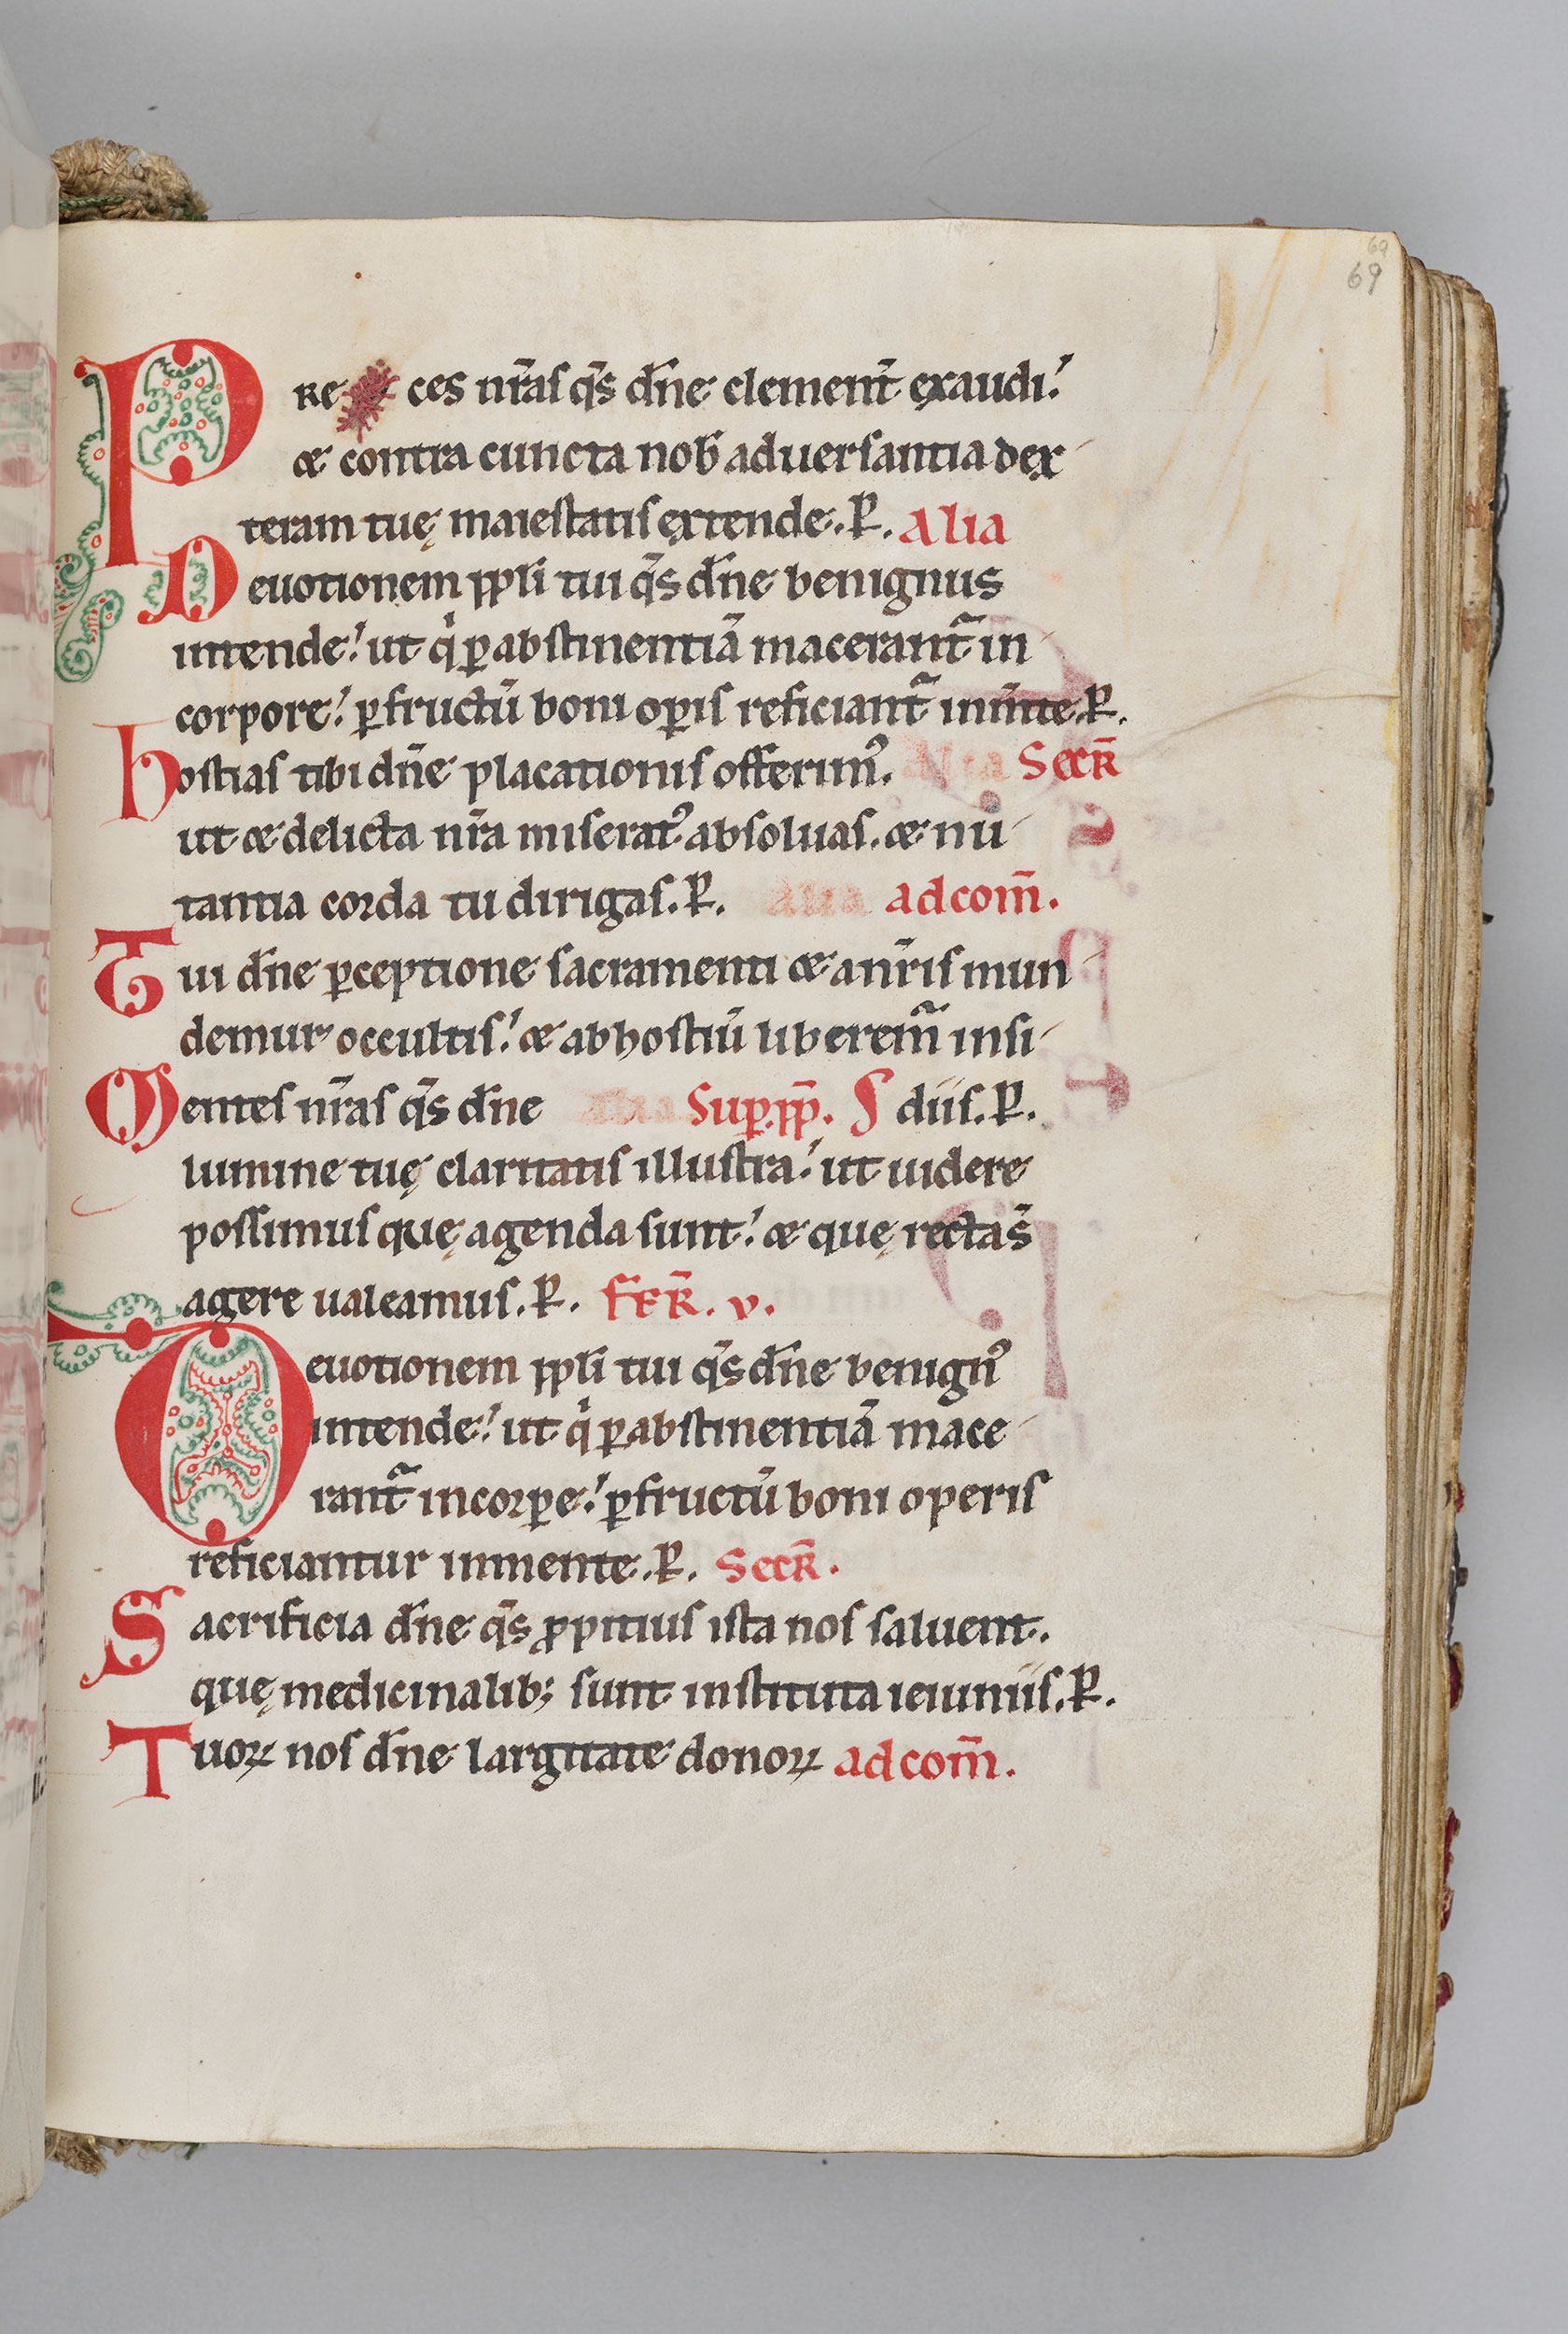 69
69
PRE ces nr̄as q̄s dn̄e clement̄ exaudi.
æ contra cuncta nob̄ aduersantia dex-
teram tuę maiestatis extende. P. Alia
Deuotionem ppli̅ tui q̄s dn̄e benignus
intende. ut qͥ ꝑ abstinentiā macerant̄ in-
corpore. ꝑ fructū boni oꝑis reficiant̄ in m̄te. P.
hostias tibi dn̄e placationis offerimꝰ. Secr̄
ut æ delicta nr̄a miseratꝰ absoluas. æ nu-
tantia corda tu dirigas. P. ad com̄.
Tui dn̄e ꝑceptione sacramenti æ a nr̄is mun-
demur occultis. æ ab hostiū liberem̄ insi-
Mentes nr̄as q̄s dn̄e Suꝑ. pp̄. S diis. P.
lumine tuę claritatis illustra. ut uidere
possimus quę agenda sunt. æ quę recta s̄
agere ualeamus. P. FER̄. v.
Deuotionem ppli̅ tui q̄s dn̄e benignꝰ
intende. ut qͥ ꝑ abstinentiā mace-
rant̄ in corꝑe. ꝑ fructū boni operis
reficiantur in mente. P. Secr̄.
Sacrificia dn̄e q̄s ꝓpitius ista nos saluent.
quę medicinalib; sunt instituta ieiuniis. P.
Tuoꝝ nos dn̄e largitate donoꝝ ad com̄.